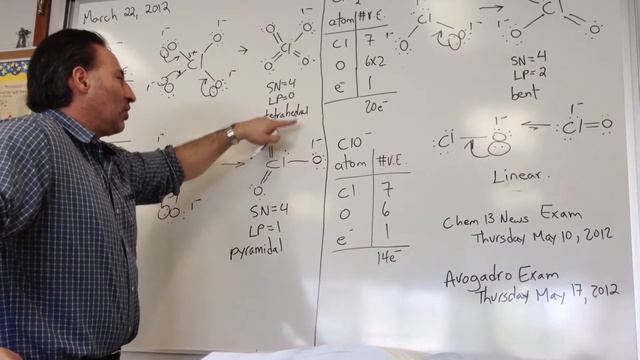 March 22, 2012
SN=4
LP=0
tetrahedral
SN=4
LP=1
pyramidal
atom #V.E.
Cl 7
O 6x2
e⁻ 1
20e⁻
ClO⁻
atom #V.E.
Cl 7
O 6
e⁻ 1
14e⁻
SN=4
LP=2
bent
Linear.
Chem 13 News Exam
Thursday May 10, 2012
Avogadro Exam
Thursday May 17, 2012